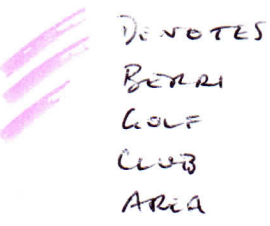 DENOTES
BERRI
GOLF
CLUB
AREA